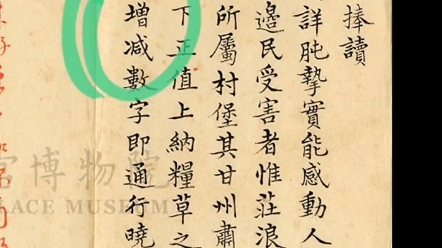 捧讀
詳肫摯實能感動人
邊民受害者惟莊浪
所屬村堡其甘州肅
下正值上納糧草之
增减數字即通行曉
宮博物院
PALACE MUSEUM